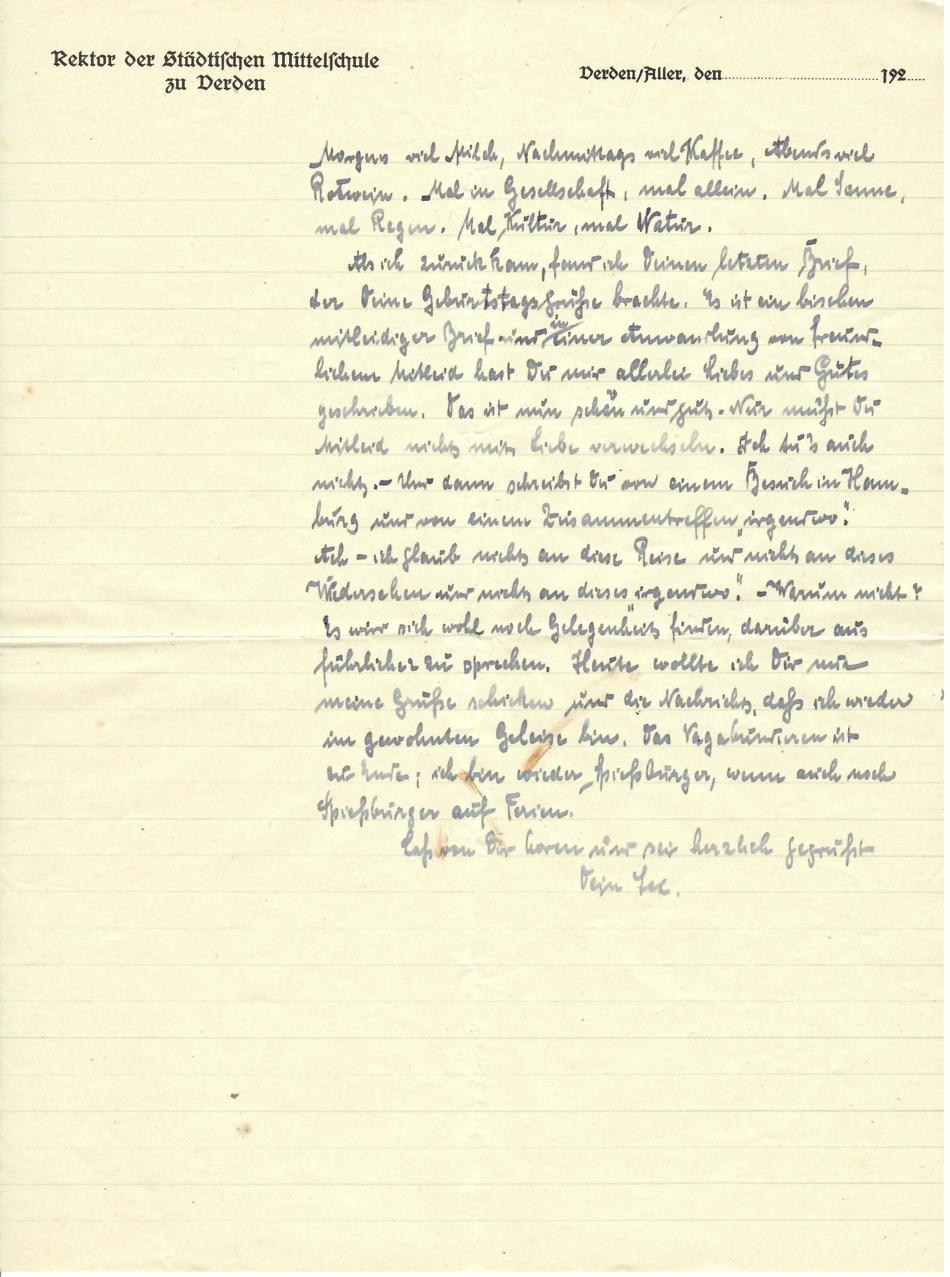 Rektor der Städtischen Mittelschule
zu Verden
Verden/Aller, den 192
Morgens viel Milch, Nachmittags viel Kaffee, Abends viel
Rotwein. Mal in Gesellschaft, mal allein. Mal Sonne,
mal Regen. Mal Kultur, mal Natur.
Als ich zurückkam, fand ich Deinen letzten Brief,
der Deine Geburtstagsgrüße brachte. Es ist ein bischen
mitleidiger Brief und in einer Anwandlung von freund-
lichem Mitleid hast Du mir allerlei Liebes und Gutes
geschrieben. Das ist nun schön und gut. Nur mußt Du
Mitleid nicht mit Liebe verwechseln. Ich tu's auch
nicht. – Und dann schreibst Du von einem Besuch in Ham-
burg und von einem Zusammentreffen „irgendwo“.
Ach – ich glaub nicht an diese Reise und nicht an dieses
Wiedersehen und nicht an dieses „irgendwo“. – Warum nicht?
Es wird sich wohl noch Gelegenheit finden, darüber aus
führlicher zu sprechen. Heute wollte ich Dir nur
meine Grüße schicken und die Nachricht, daß ich wieder
im gewohnten Geleise bin. Das Vagabundieren ist
zu Ende; ich bin wieder Spießbürger, wenn auch noch
Spießbürger auf Ferien.
Laß von Dir hören und sei herzlich gegrüßt
Dein